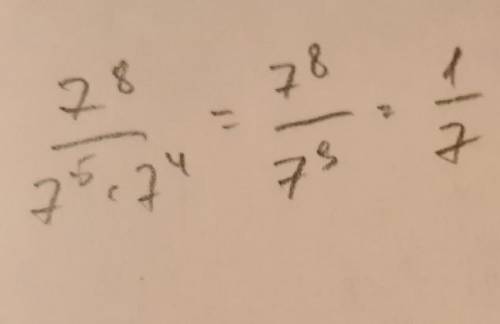 7^8 / (7^5 · 7^4) = 7^8 / 7^9 = 1/7